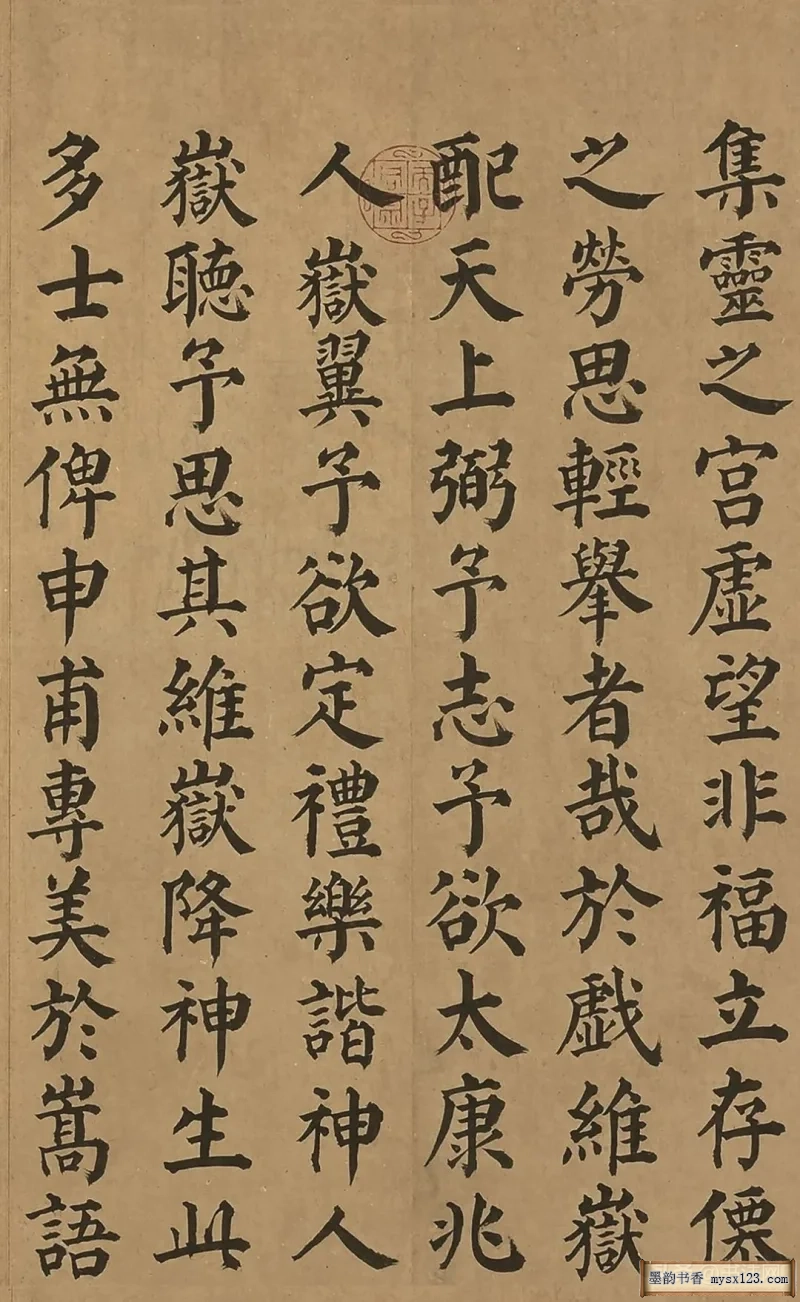 集靈之宫虛望非福立存僊
之勞思輕舉者哉於戲維嶽
配天上弼予志予欲太康兆
人嶽翼予欲定禮樂諧神人
嶽聽予思其維嶽降神生此
多士無俾申甫專美於嵩語
墨韵书香 mysx123.com